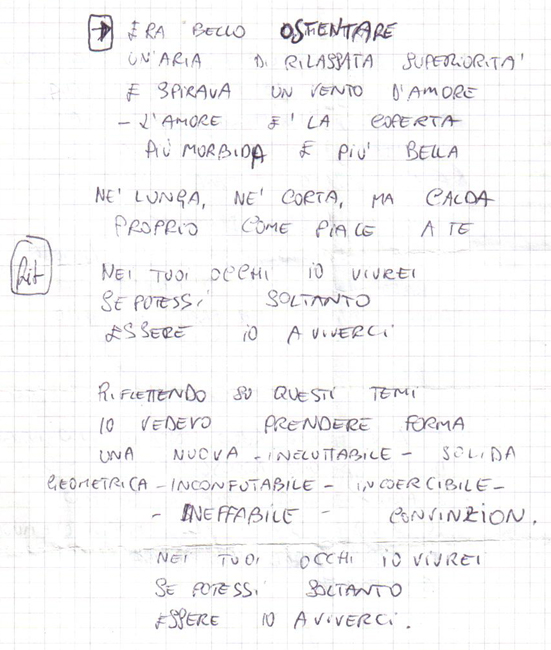 → ERA BELLO OSTENTARE
UN'ARIA DI RILASSATA SUPERIORITA'
E SPIRAVA UN VENTO D'AMORE
- L'AMORE E' LA COPERTA
PIÙ MORBIDA E PIU' BELLA
NE' LUNGA, NE' CORTA, MA CALDA
PROPRIO COME PIACE A TE
Rit
NEI TUOI OCCHI IO VIVREI
SE POTESSI SOLTANTO
ESSERE IO A VIVERCI
RIFLETTENDO SU QUESTI TEMI
IO VEDEVO PRENDERE FORMA
UNA NUOVA - INELUTTABILE - SOLIDA
GEOMETRICA - INCONFUTABILE - INCOERCIBILE -
- INEFFABILE - CONVINZION.
NEI TUOI OCCHI IO VIVREI
SE POTESSI SOLTANTO
ESSERE IO A VIVERCI.